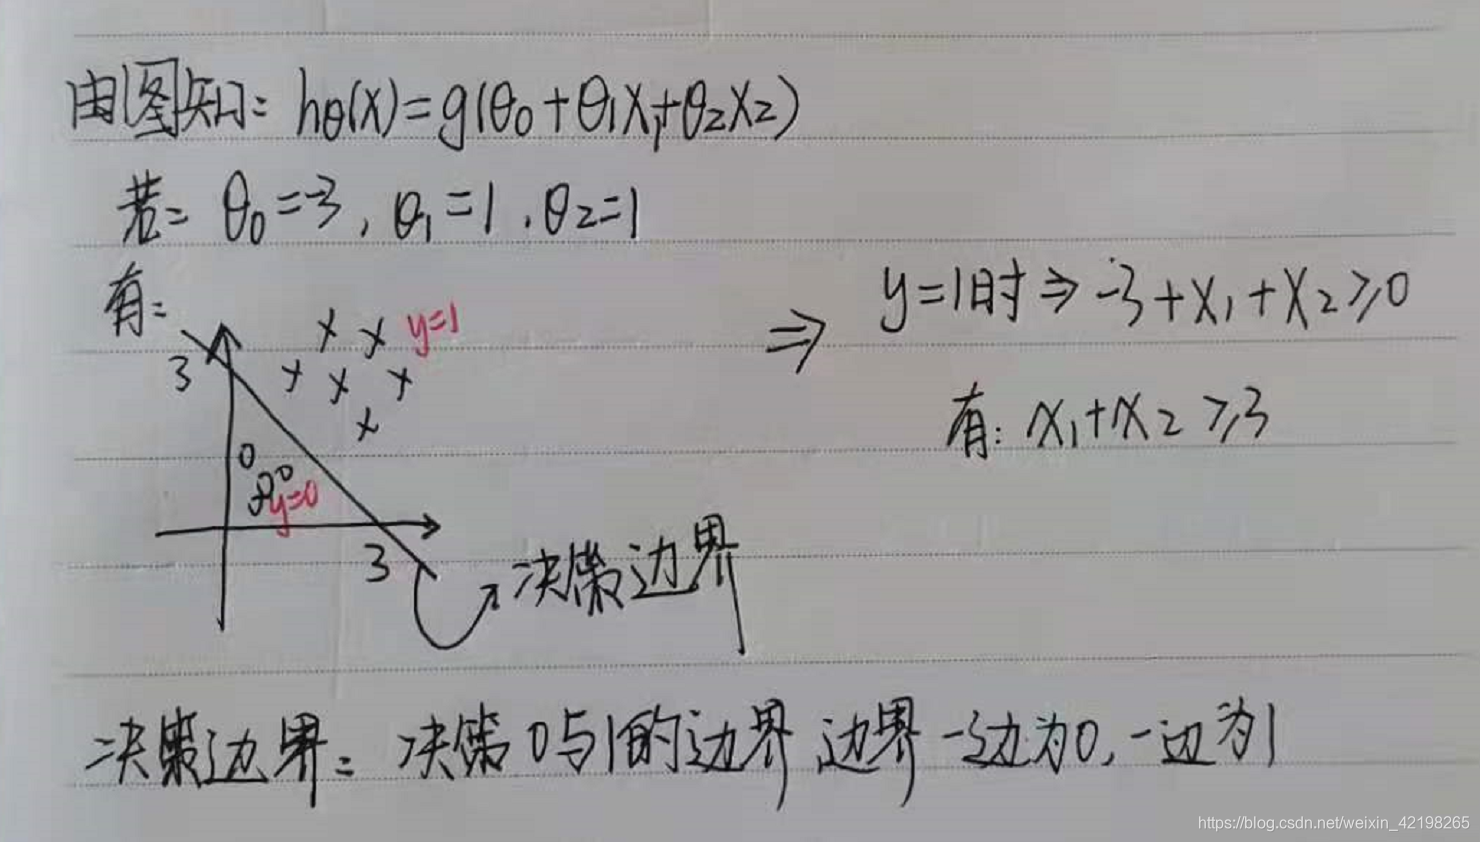 由图知: hθ(x)=g(θ0+θ1x1+θ2x2)
若: θ0=-3, θ1=1, θ2=1
有:
3
y=1
y=0
3
决策边界
⇒ y=1时⇒ -3+x1+x2≥0
有: x1+x2≥3
决策边界: 决策0与1的边界 边界一边为0, 一边为1
https://blog.csdn.net/weixin_42198265